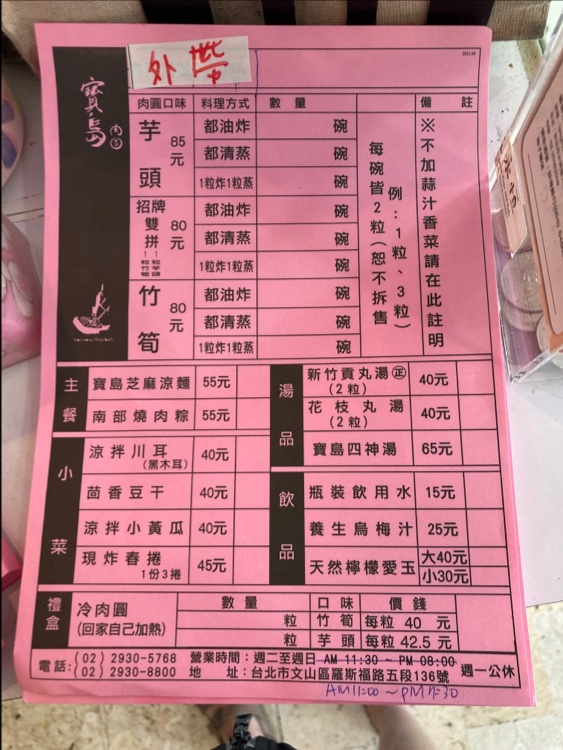 外帶
寶島肉圓
肉圓口味 料理方式 數量 備註
芋頭 85元
都油炸 碗
都清蒸 碗
1粒炸1粒蒸 碗
招牌雙拼 80元
1粒竹筍 1粒芋頭
都油炸 碗
都清蒸 碗
1粒炸1粒蒸 碗
竹筍 80元
都油炸 碗
都清蒸 碗
1粒炸1粒蒸 碗
每碗皆2粒(恕不拆售
例:1粒、3粒)
※不加蒜汁香菜請在此註明
主餐
寶島芝麻涼麵 55元
南部燒肉粽 55元
湯品
新竹貢丸湯㊣ 40元
(2粒)
花枝丸湯 40元
(2粒)
寶島四神湯 65元
小菜
涼拌川耳 40元
(黑木耳)
茴香豆干 40元
涼拌小黃瓜 40元
現炸春捲 45元
1份3捲
飲品
瓶裝飲用水 15元
養生烏梅汁 25元
天然檸檬愛玉 大40元
小30元
禮盒
冷肉圓
(回家自己加熱)
數量 口味 價錢
粒 竹筍 每粒 40 元
粒 芋頭 每粒 42.5 元
電話:(02) 2930-5768 營業時間:週二至週日 AM 11:30 ~ PM 08:00 週一公休
(02) 2930-8800 地 址:台北市文山區羅斯福路五段136號
AM11:00 ~ PM7:30